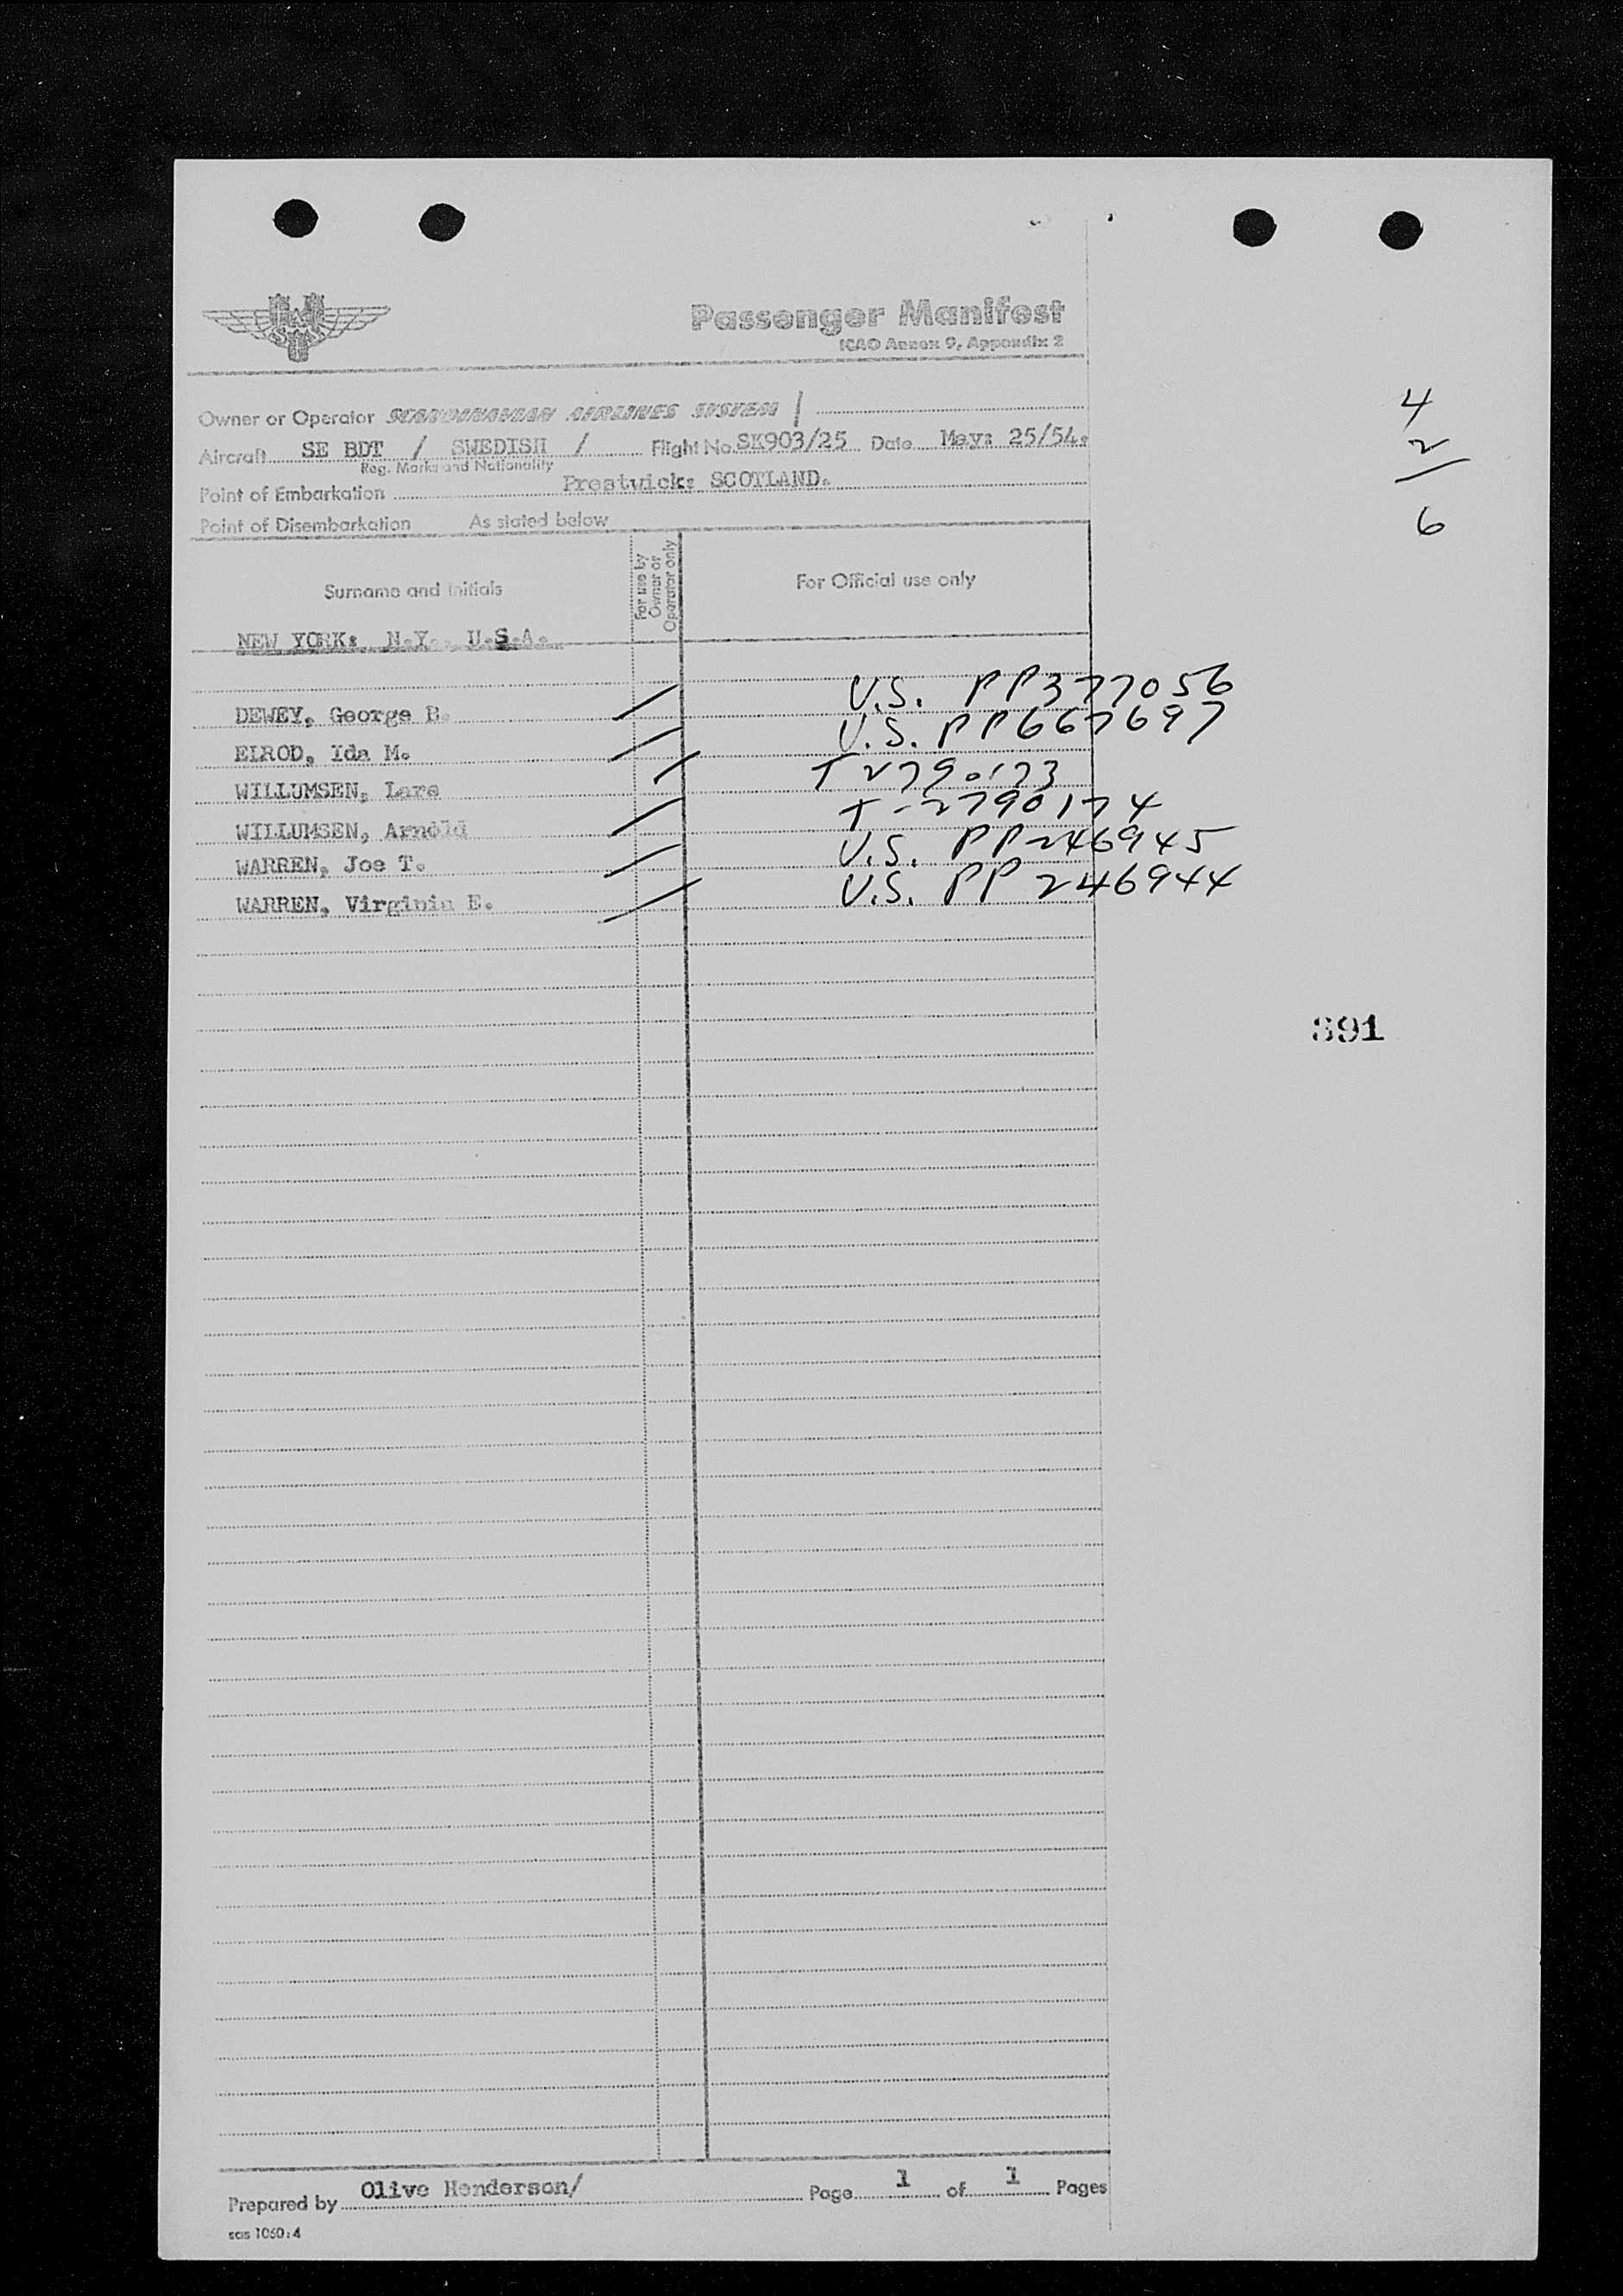 Passenger Manifest
ICAO Annex 9, Appendix 2
Owner or Operator SCANDINAVIAN AIRLINES SYSTEM /
Aircraft SE BDT / SWEDISH / Flight No. SK903/25 Date May: 25/54.
Reg. Marks and Nationality
Point of Embarkation Prestwick: SCOTLAND.
Point of Disembarkation As stated below
Surname and Initials
For use by Owner or Operator only
For Official use only
NEW YORK: N.Y. U.S.A.
DEWEY, George B. / U.S. PP377056
ELROD, Ida M. / U.S. PP667697
WILLUMSEN, Lars / T2790173
WILLUMSEN, Arnold / T-2790174
WARREN, Joe T. / U.S. PP246945
WARREN, Virginia E. / U.S. PP246944
4
2
6
891
Prepared by Olive Henderson/ Page 1 of 1 Pages
sas 1060:4